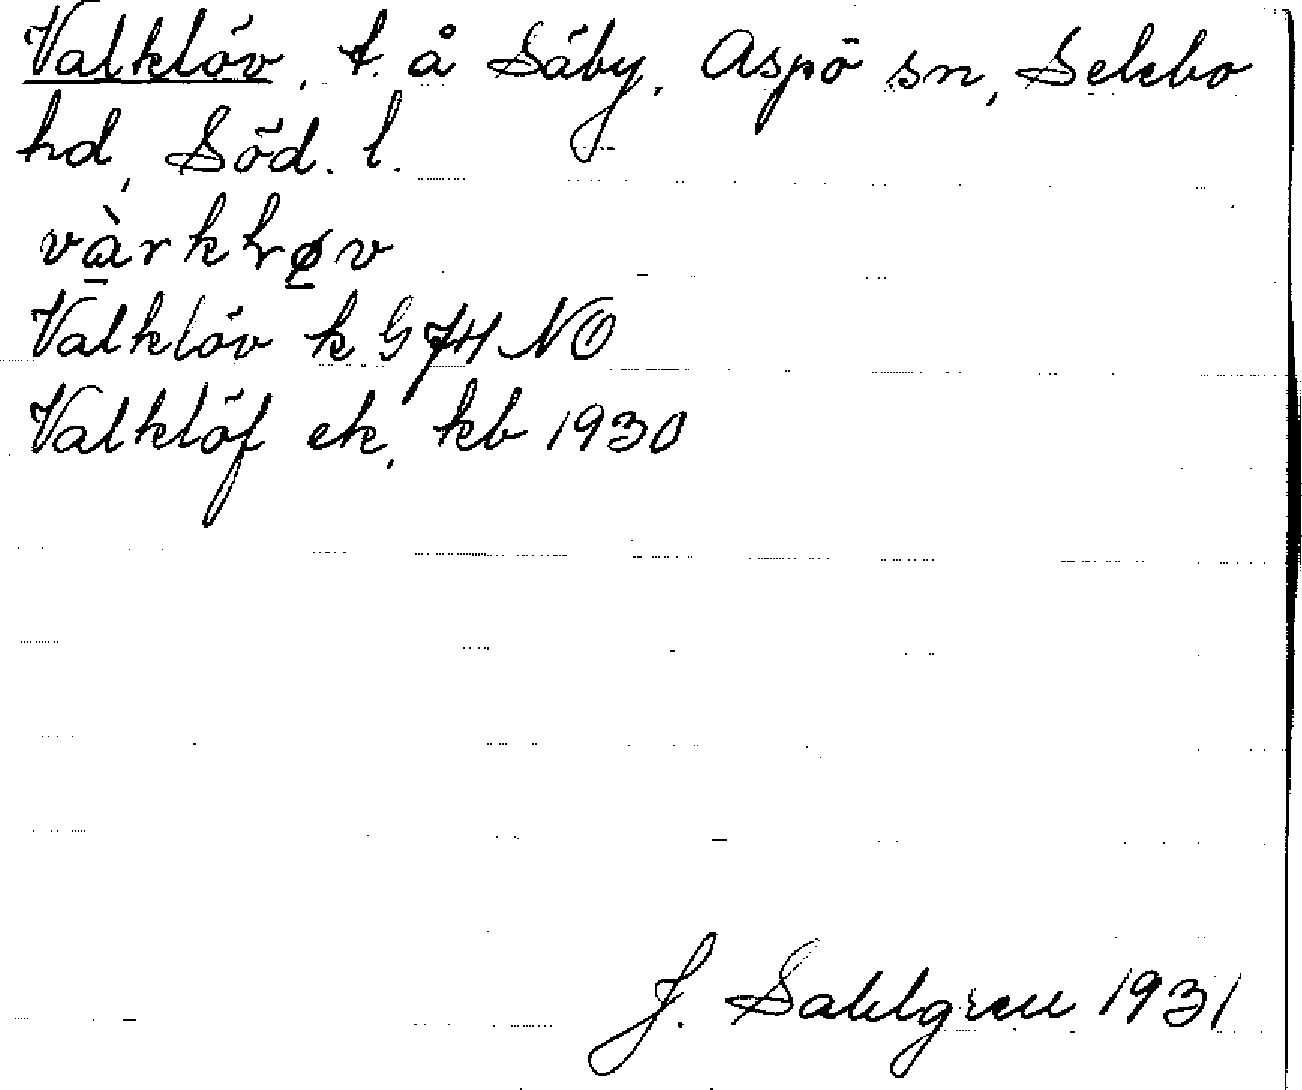 Valklöv, t. å Säby, Aspö sn, Selebo
hd, Söd. l.
Valklöv k G 74 NO
Valklöf ek, kb 1930
J. Sahlgren 1931